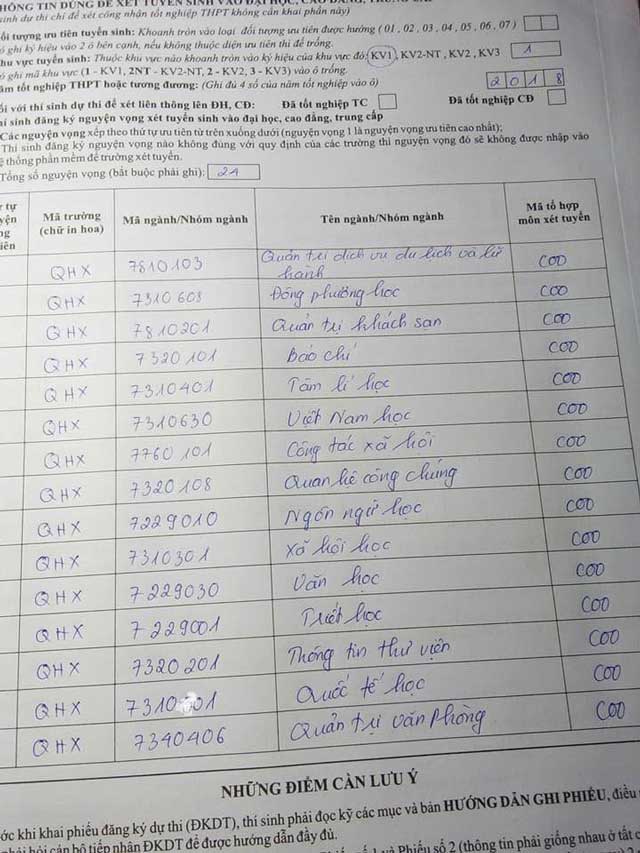 HÔNG TIN DÙNG ĐỂ XÉT TUYỂN SINH VÀO ĐẠI HỌC, CAO ĐẲNG, TRUNG CẤP
sinh dự thi chỉ để xét công nhận tốt nghiệp THPT không cần khai phần này)
ối tượng ưu tiên tuyển sinh: Khoanh tròn vào loại đối tượng ưu tiên được hưởng (01, 02, 03, 04, 05, 06, 07)
ó ghi ký hiệu vào 2 ô bên cạnh, nếu không thuộc diện ưu tiên thì để trống.
hu vực tuyển sinh: Thuộc khu vực nào khoanh tròn vào ký hiệu của khu vực đó; KV1, KV2-NT, KV2, KV3 1
ó ghi mã khu vực (1 - KV1, 2NT - KV2-NT, 2 - KV2, 3 - KV3) vào ô trống.
ăm tốt nghiệp THPT hoặc tương đương: (Ghi đủ 4 số của năm tốt nghiệp vào ô) 2018
ối với thí sinh dự thi để xét liên thông lên ĐH, CĐ: Đã tốt nghiệp TC Đã tốt nghiệp CĐ
hí sinh đăng ký nguyện vọng xét tuyển sinh vào đại học, cao đẳng, trung cấp
Các nguyện vọng xếp theo thứ tự ưu tiên từ trên xuống dưới (nguyện vọng 1 là nguyện vọng ưu tiên cao nhất);
Thí sinh đăng ký nguyện vọng nào không đúng với quy định của các trường thì nguyện vọng đó sẽ không được nhập vào
ệ thống phần mềm để trường xét tuyển.
Tổng số nguyện vọng (bắt buộc phải ghi): 21
ứ tự yện ng iên Mã trường (chữ in hoa) Mã ngành/Nhóm ngành Tên ngành/Nhóm ngành Mã tổ hợp môn xét tuyển
QHX 7810103 Quản trị dịch vụ du lịch và lữ hành C00
QHX 7310608 Đông phương học C00
QHX 7810201 Quản trị khách sạn C00
QHX 7320101 Báo chí C00
QHX 7310401 Tâm lí học C00
QHX 7310630 Việt Nam học C00
QHX 7760101 Công tác xã hội C00
QHX 7320108 Quan hệ công chúng C00
QHX 7229010 Ngôn ngữ học C00
QHX 7310301 Xã hội học C00
QHX 7229030 Văn học C00
QHX 7229001 Triết học C00
QHX 7320201 Thông tin thư viện C00
QHX Quốc tế học C00
QHX 7340406 Quản trị văn phòng C00
NHỮNG ĐIỂM CẦN LƯU Ý
ớc khi khai phiếu đăng ký dự thi (ĐKDT), thí sinh phải đọc kỹ các mục và bản HƯỚNG DẪN GHI PHIẾU, điều
phải hỏi cán bộ tiếp nhận ĐKDT để được hướng dẫn đầy đủ.
và Phiếu số 2 (thông tin phải giống nhau ở tất c